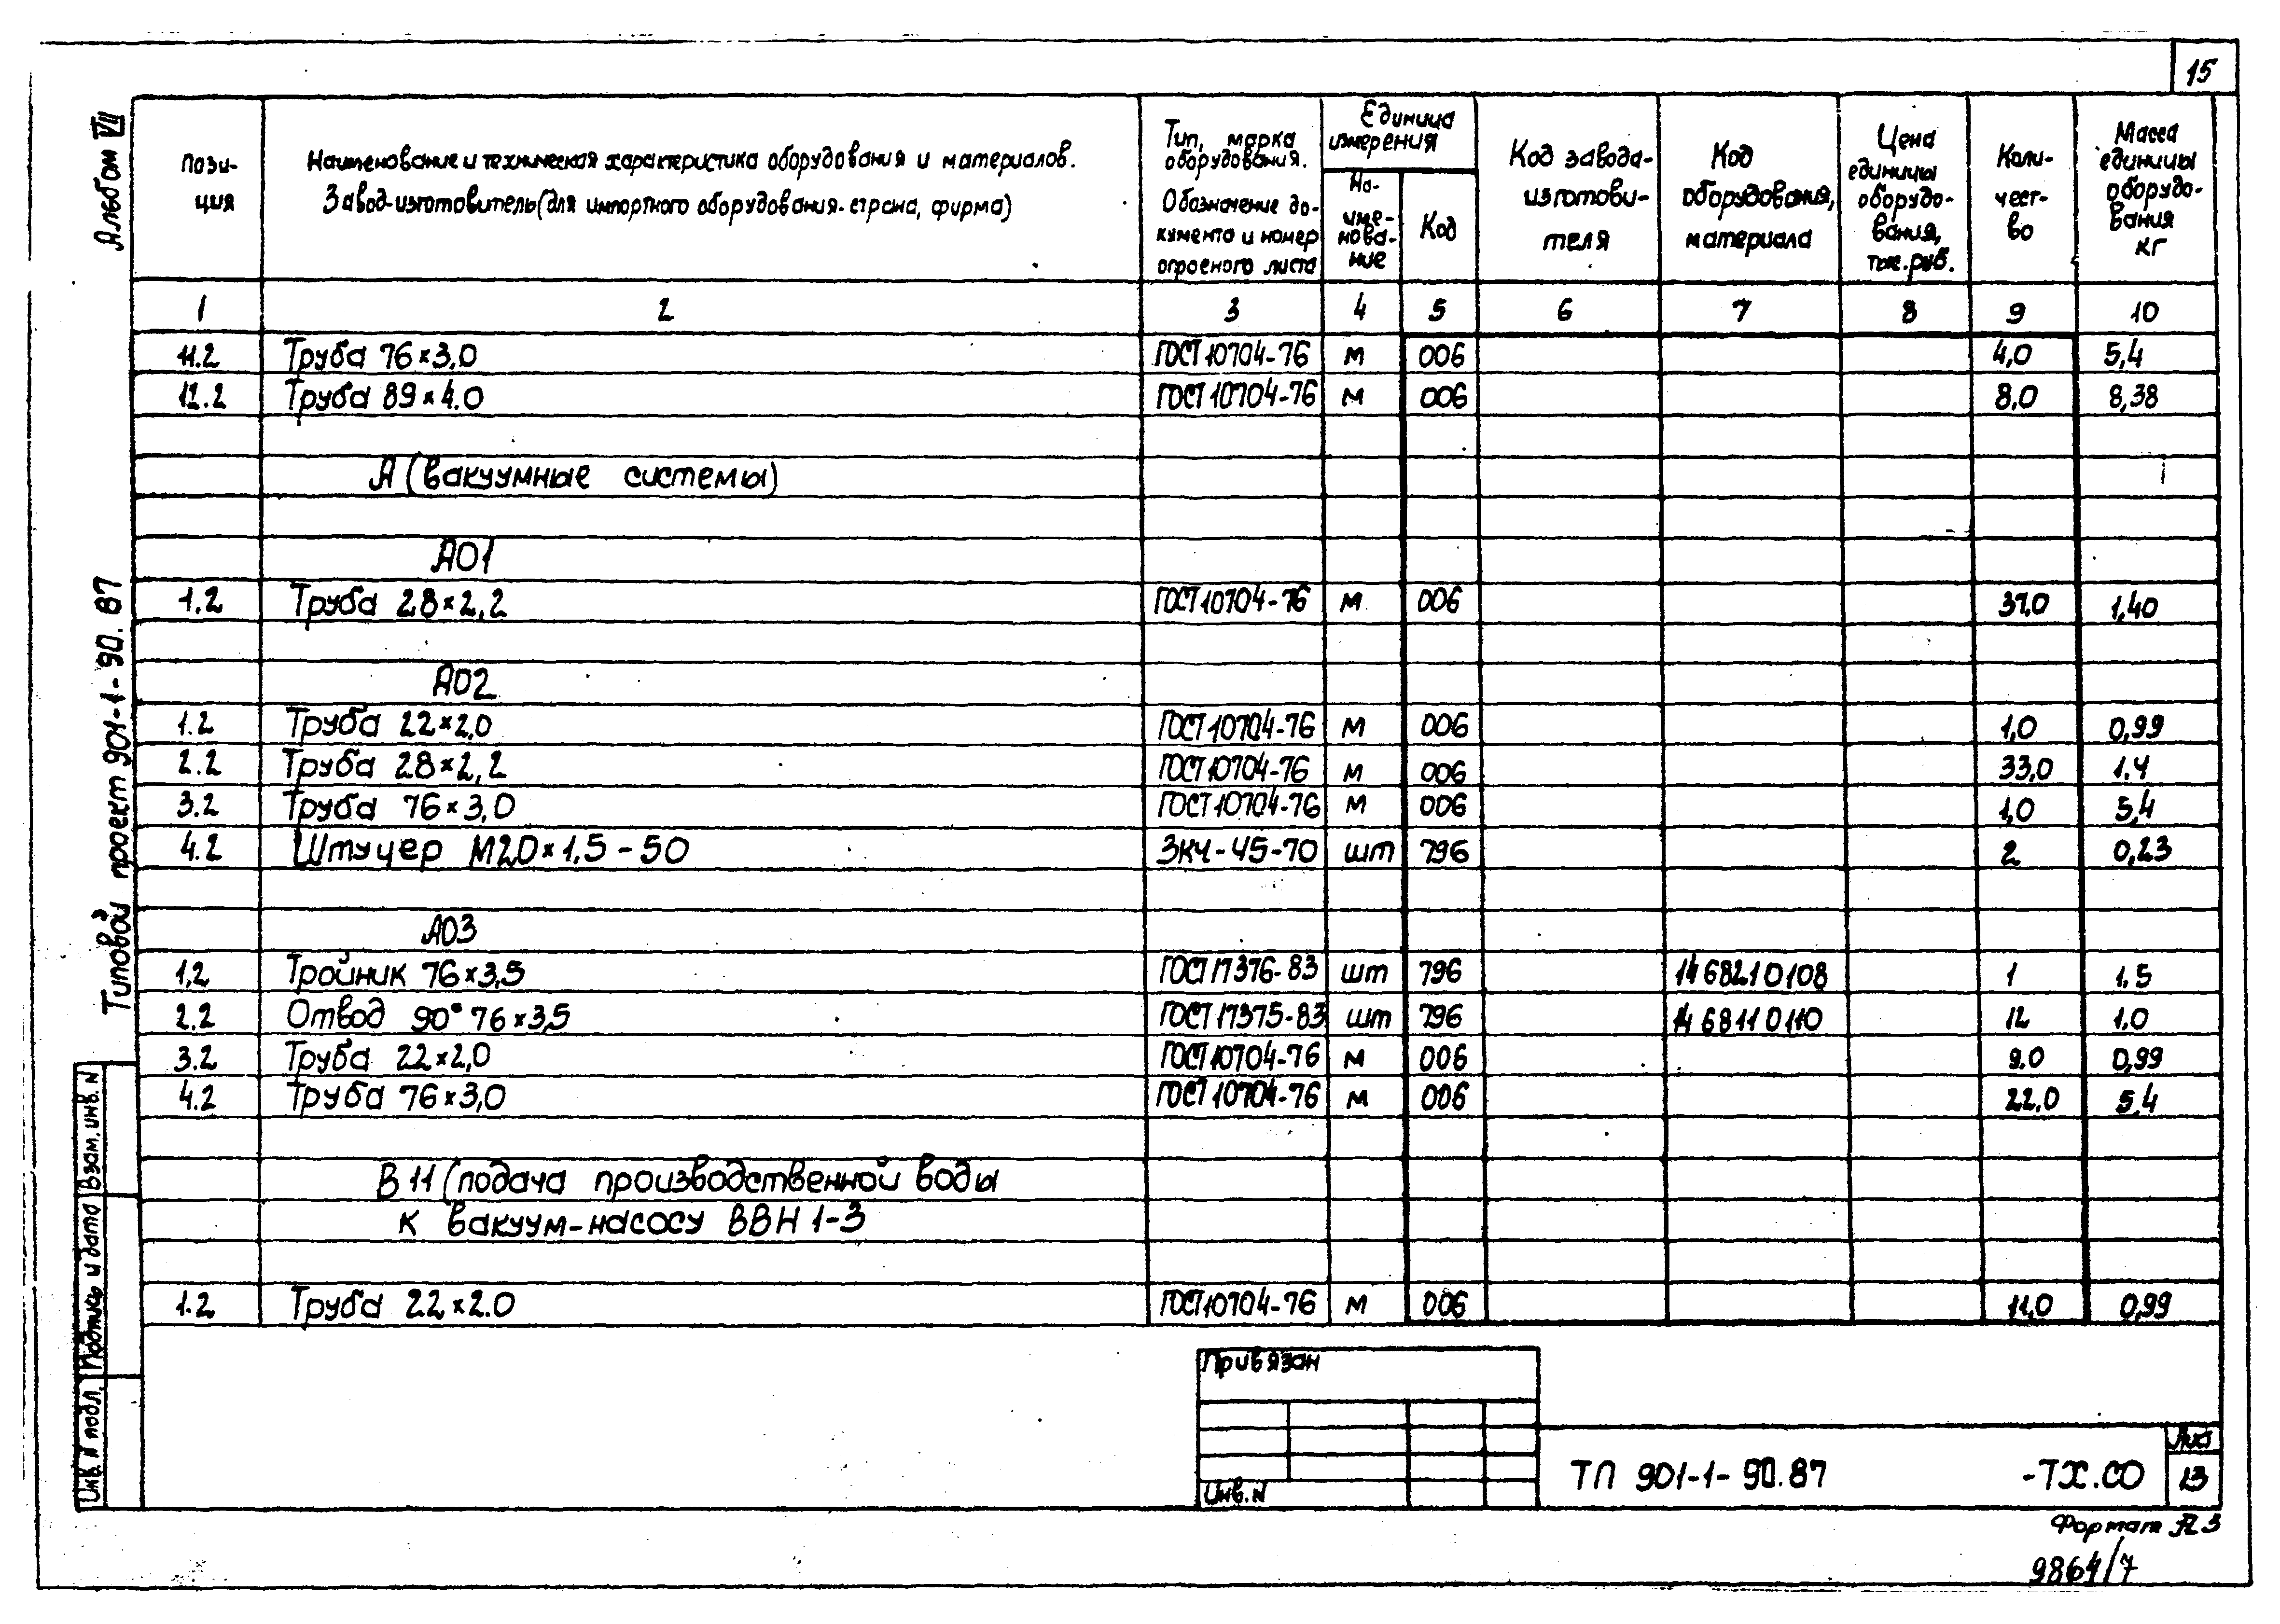 15
Альбом VII
Типовой проект 901-1-90.87
Пози-ция
Наименование и техническая характеристика оборудования и материалов.
Завод-изготовитель (для импортного оборудования-страна, фирма)
Тип, марка оборудования.
Обозначение до-кумента и номер опросного листа
Единица измерения
На-име-нова-ние
Код
Код завода-изготови-теля
Код оборудования, материала
Цена единицы оборудо-вания, тыс.руб.
Коли-чест-во
Масса единицы оборудо-вания кг
1 2 3 4 5 6 7 8 9 10
11.2 Труба 76×3,0 ГОСТ 10704-76 м 006 4,0 5,4
12.2 Труба 89×4.0 ГОСТ 10704-76 м 006 8,0 8,38
А (вакуумные системы)
А01
1.2 Труба 28×2,2 ГОСТ 10704-76 м 006 37.0 1,40
А02
1.2 Труба 22×2,0 ГОСТ 10704-76 м 006 1,0 0,99
2.2 Труба 28×2,2 ГОСТ 10704-76 м 006 33,0 1.4
3.2 Труба 76×3,0 ГОСТ 10704-76 м 006 1,0 5,4
4.2 Штуцер М20×1,5-50 ЗКЧ-45-70 шт 796 2 0,23
А03
1,2 Тройник 76×3,5 ГОСТ 17376-83 шт 796 14 6821 0108 1 1,5
2.2 Отвод 90° 76×3,5 ГОСТ 17375-83 шт 796 14 6811 0110 12 1.0
3.2 Труба 22×2,0 ГОСТ 10704-76 м 006 9.0 0,99
4.2 Труба 76×3,0 ГОСТ 10704-76 м 006 22.0 5,4
В 11 (подача производственной воды
к вакуум-насосу ВВН 1-3
1.2 Труба 22×2.0 ГОСТ 10704-76 м 006 11,0 0,99
Взам. инв. N
Подпись и дата
Инв. N подл.
Привязан
Инв. N
ТП 901-1-90.87 -ТХ.СО
Лист
13
Формат А3
9864/7